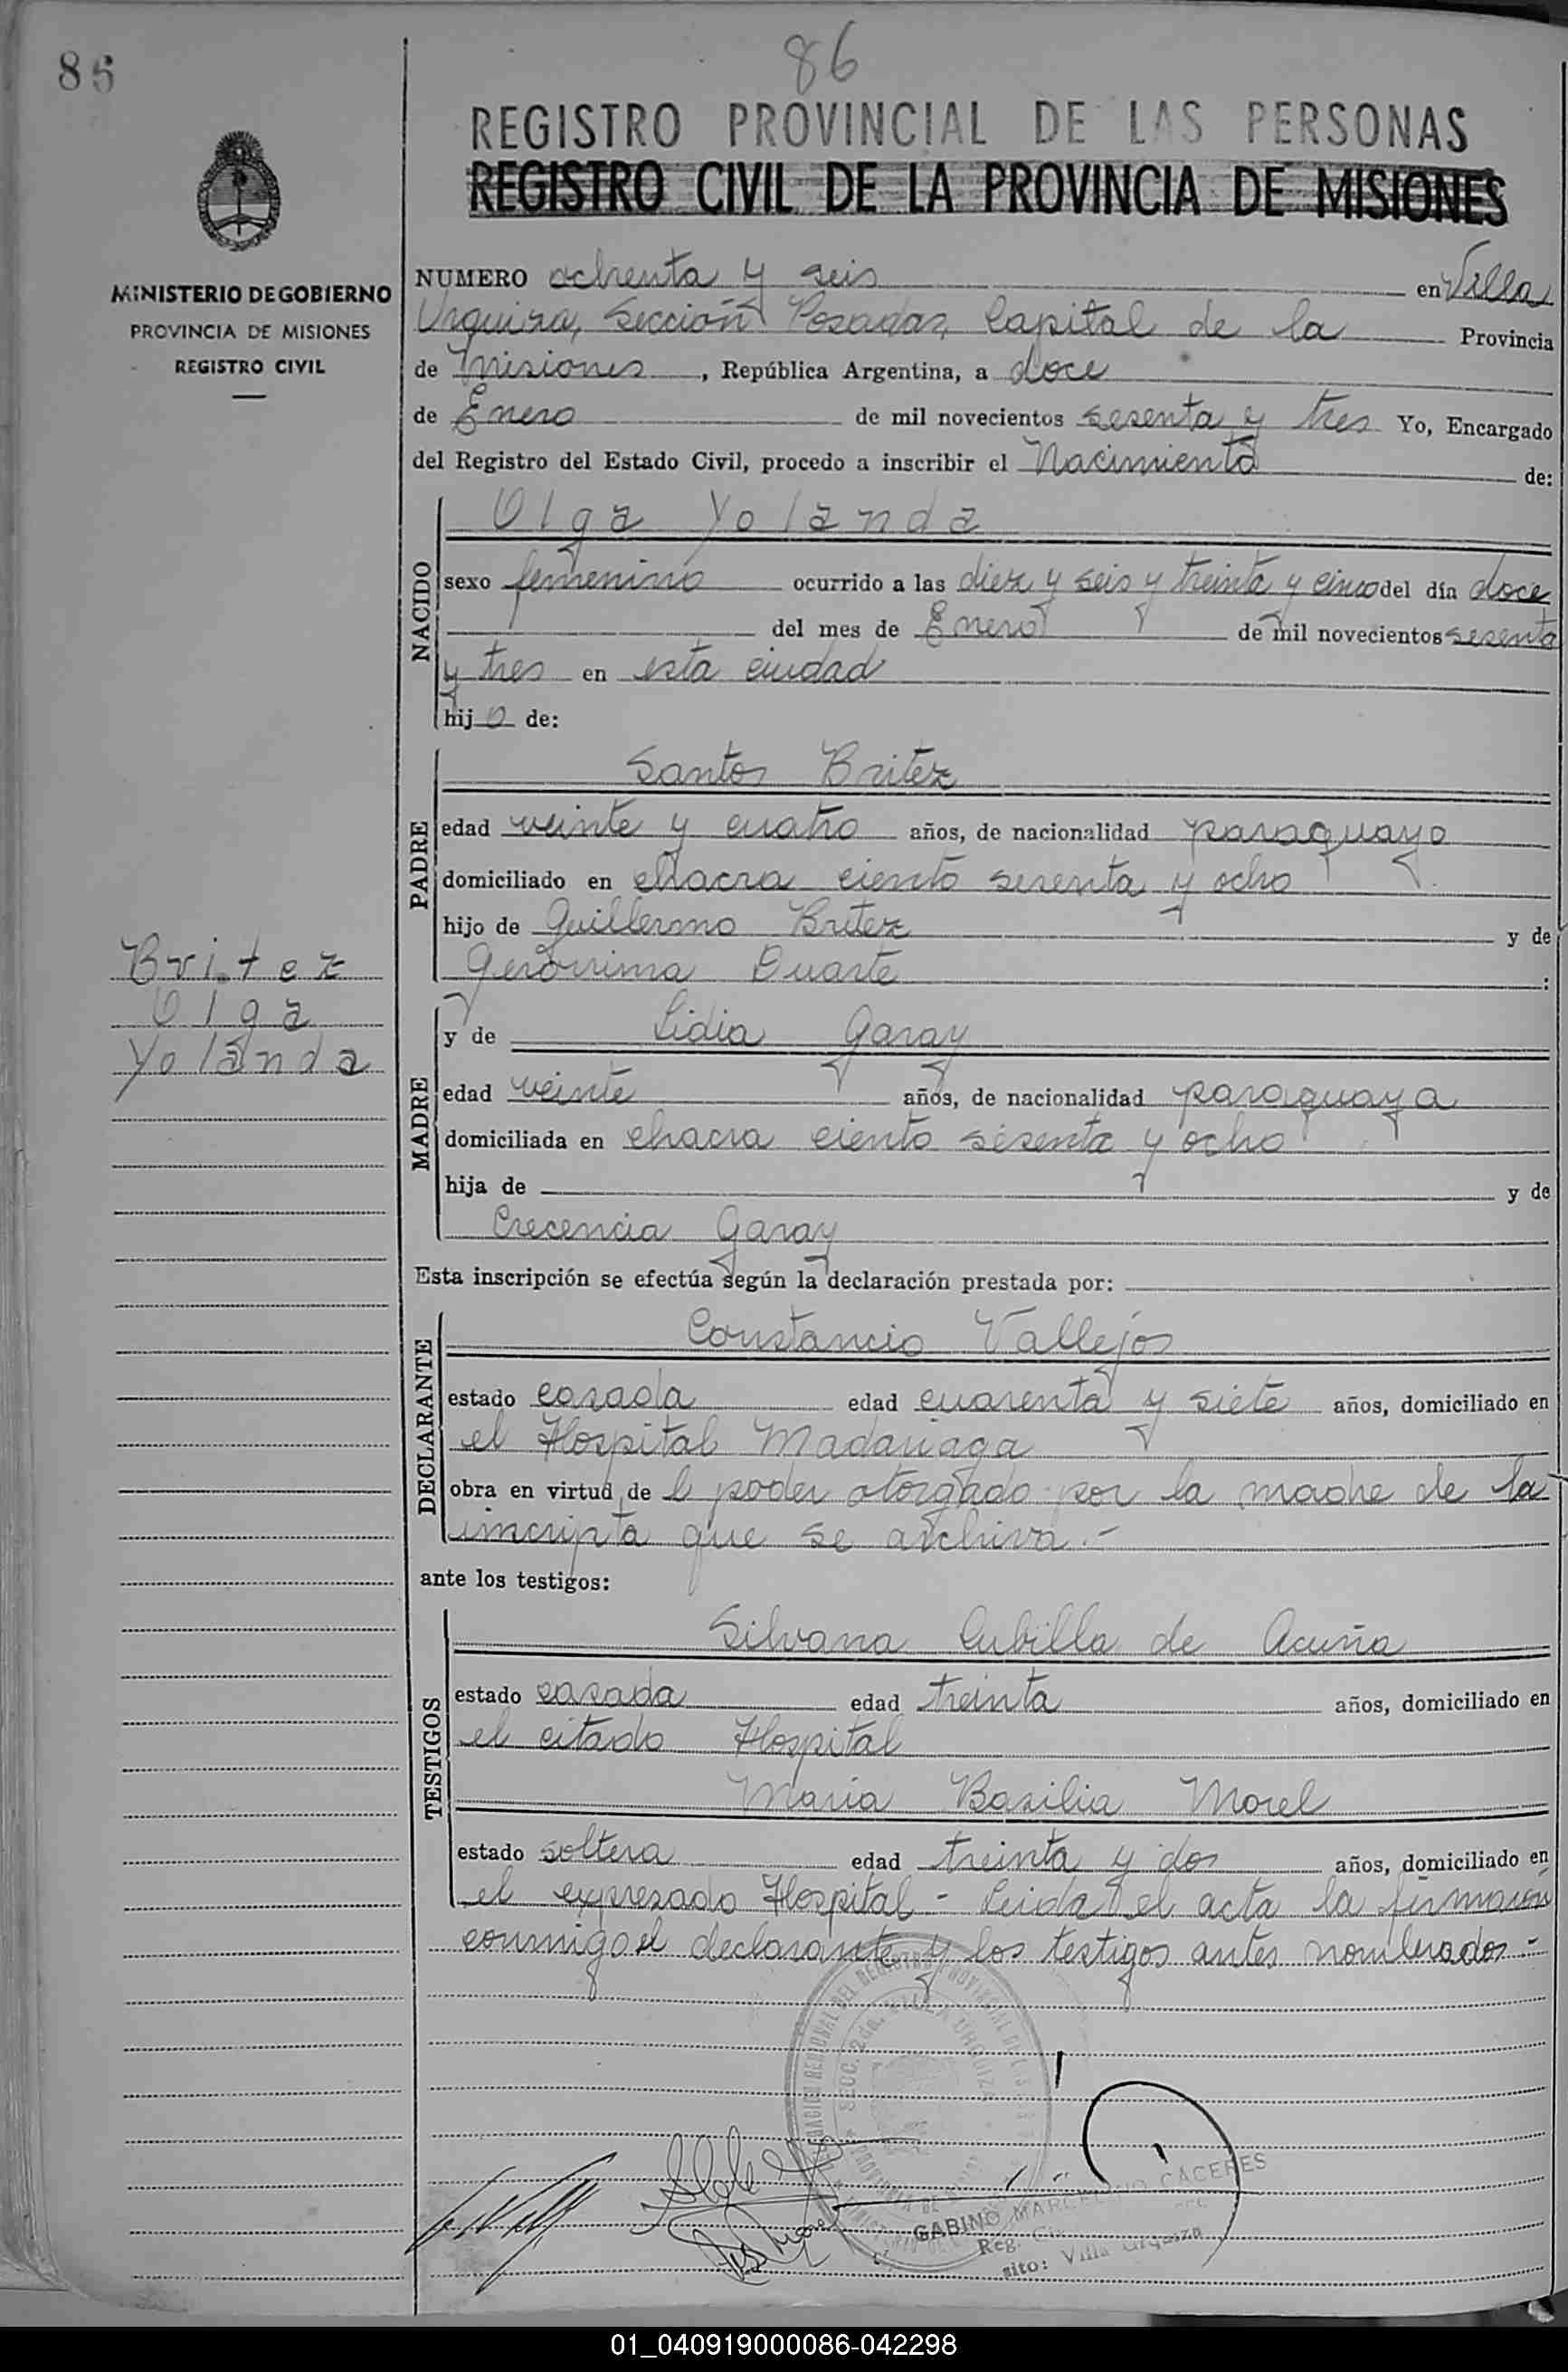 86
86
REGISTRO PROVINCIAL DE LAS PERSONAS
REGISTRO CIVIL DE LA PROVINCIA DE MISIONES
MINISTERIO DE GOBIERNO
PROVINCIA DE MISIONES
REGISTRO CIVIL
NUMERO ochenta y seis en Villa
Urquiza, Sección Posadas, Capital de la Provincia
de Misiones, República Argentina, a doce
de Enero de mil novecientos sesenta y tres Yo, Encargado
del Registro del Estado Civil, procedo a inscribir el Nacimiento de:
NACIDO
Olga Yolanda
sexo femenino ocurrido a las diez y seis y treinta y cinco del día doce
del mes de Enero de mil novecientos sesenta
y tres en esta ciudad
hijo de:
PADRE
Santos Britez
edad veinte y cuatro años, de nacionalidad paraguayo
domiciliado en chacra ciento sesenta y ocho
hijo de Guillermo Britez y de
Gerónima Duarte :
Britez
Olga
Yolanda
MADRE
y de Lidia Garay
edad veinte años, de nacionalidad paraguaya
domiciliada en chacra ciento sesenta y ocho
hija de y de
Crecencia Garay
Esta inscripción se efectúa según la declaración prestada por:
DECLARANTE
Constancio Vallejos
estado casada edad cuarenta y siete años, domiciliado en
el Hospital Madariaga
obra en virtud de l poder otorgado por la madre de la
inscripta que se archiva.-
ante los testigos:
TESTIGOS
Silvana Cubilla de Acuña
estado casada edad treinta años, domiciliado en
el citado Hospital
María Basilia Morel
estado soltera edad treinta y dos años, domiciliado en
el expresado Hospital - Leida el acta la firmaron
conmigo el declarante y los testigos antes nombrados -
SECC. 2da. VILLA URQUIZA
GABINO MARCELINO CACERES
Villa Urquiza
01_040919000086-042298